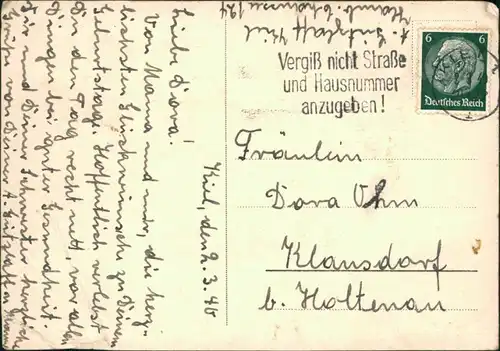 Kiel, den 2. 3. 40
Liebe Dora!
Von Mama und mir, die herz-
lichsten Glückwünsche zu Deinem
Geburtstag. Hoffentlich verlebst
Du den Tag recht nett, vor allen
Dingen bei guter Gesundheit.
Dir und Deiner Schwester herzliche
Grüße von Deiner
Kiel
Vergiß nicht Straße
und Hausnummer
anzugeben!
6 6
Deutsches Reich
Fräulein
Dora Ohm
Klausdorf
b. Holtenau